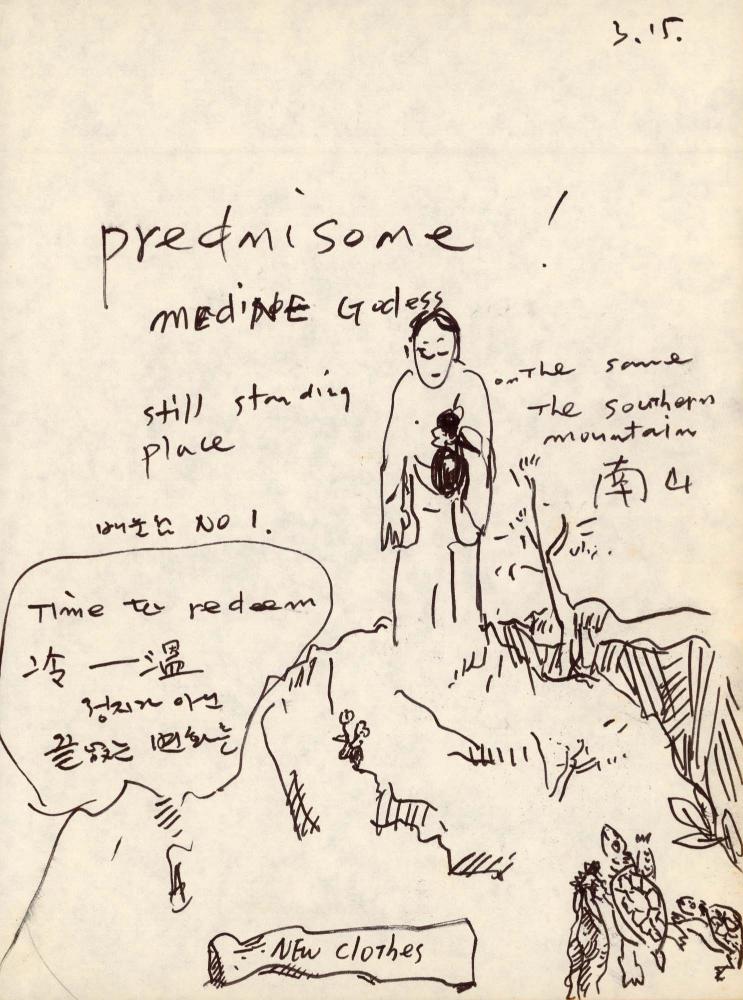 3.15.
prednisome !
mEdiNE Godess
still standing
place
on The same
The southern
mountain
南山
NO 1.
Time to redeem
冷 一溫
정지가 아닌
끝없는 변화를
NEW clothes